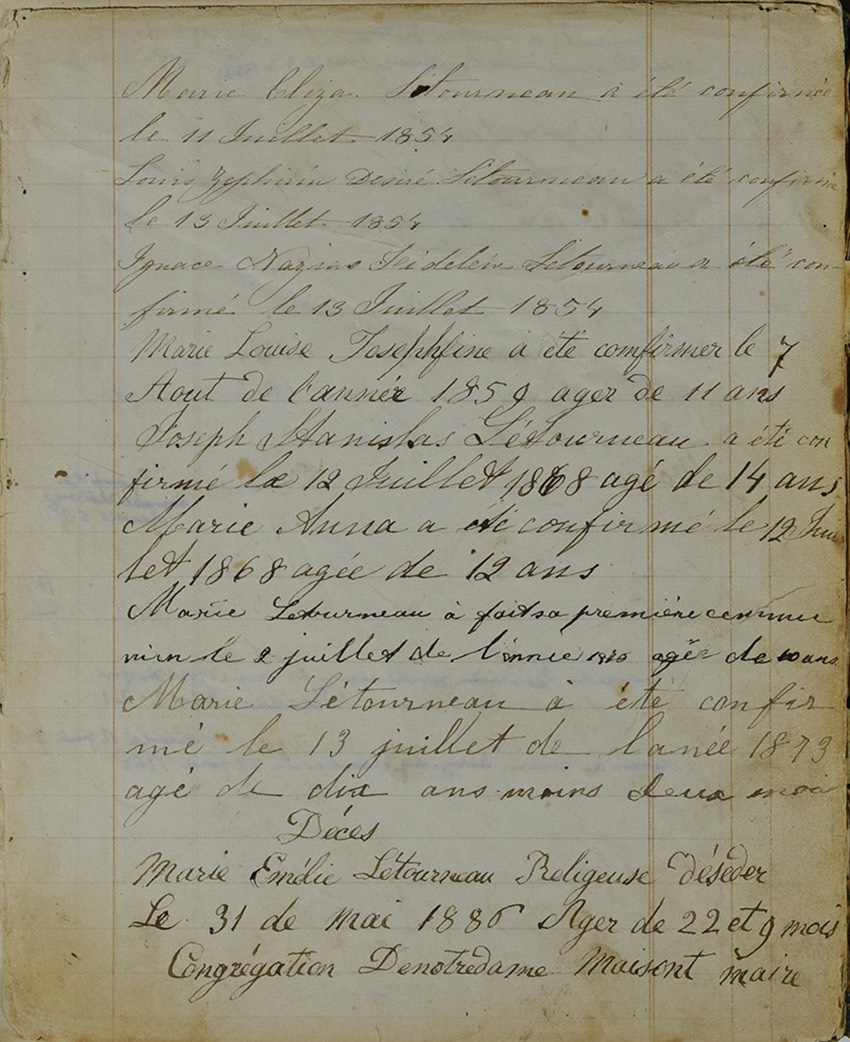 Marie Eliza Létourneau à été confirmée
le 11 Juillet 1854
Louis Zephirin Desiré Létourneau a été confirmé
le 13 Juillet 1854
Ignace Nazias Fidelein Létourneau a été con-
firmé le 13 Juillet 1854
Marie Louise Josephfine à été comfirmer le 7
Aout de l'année 1859 ager de 11 ans
Joseph Stanislas Létourneau a été con
firmé le 12 Juillet 1868 agé de 14 ans
Marie Anna a été confirmé le 12 Juil
let 1868 agée de 12 ans
Marie Letourneau à fait sa première commu
nion le 2 juillet de l'année agée de 10 ans
Marie Létourneau à été confir
mé le 13 juillet de lanée 1873
agé de dix ans moins deux moi
Déces
Marie Emélie Létourneau Religeuse déséder
Le 31 de Mai 1886 Ager de 22 et 9 mois
Congrégation Denotredame Maisont maire